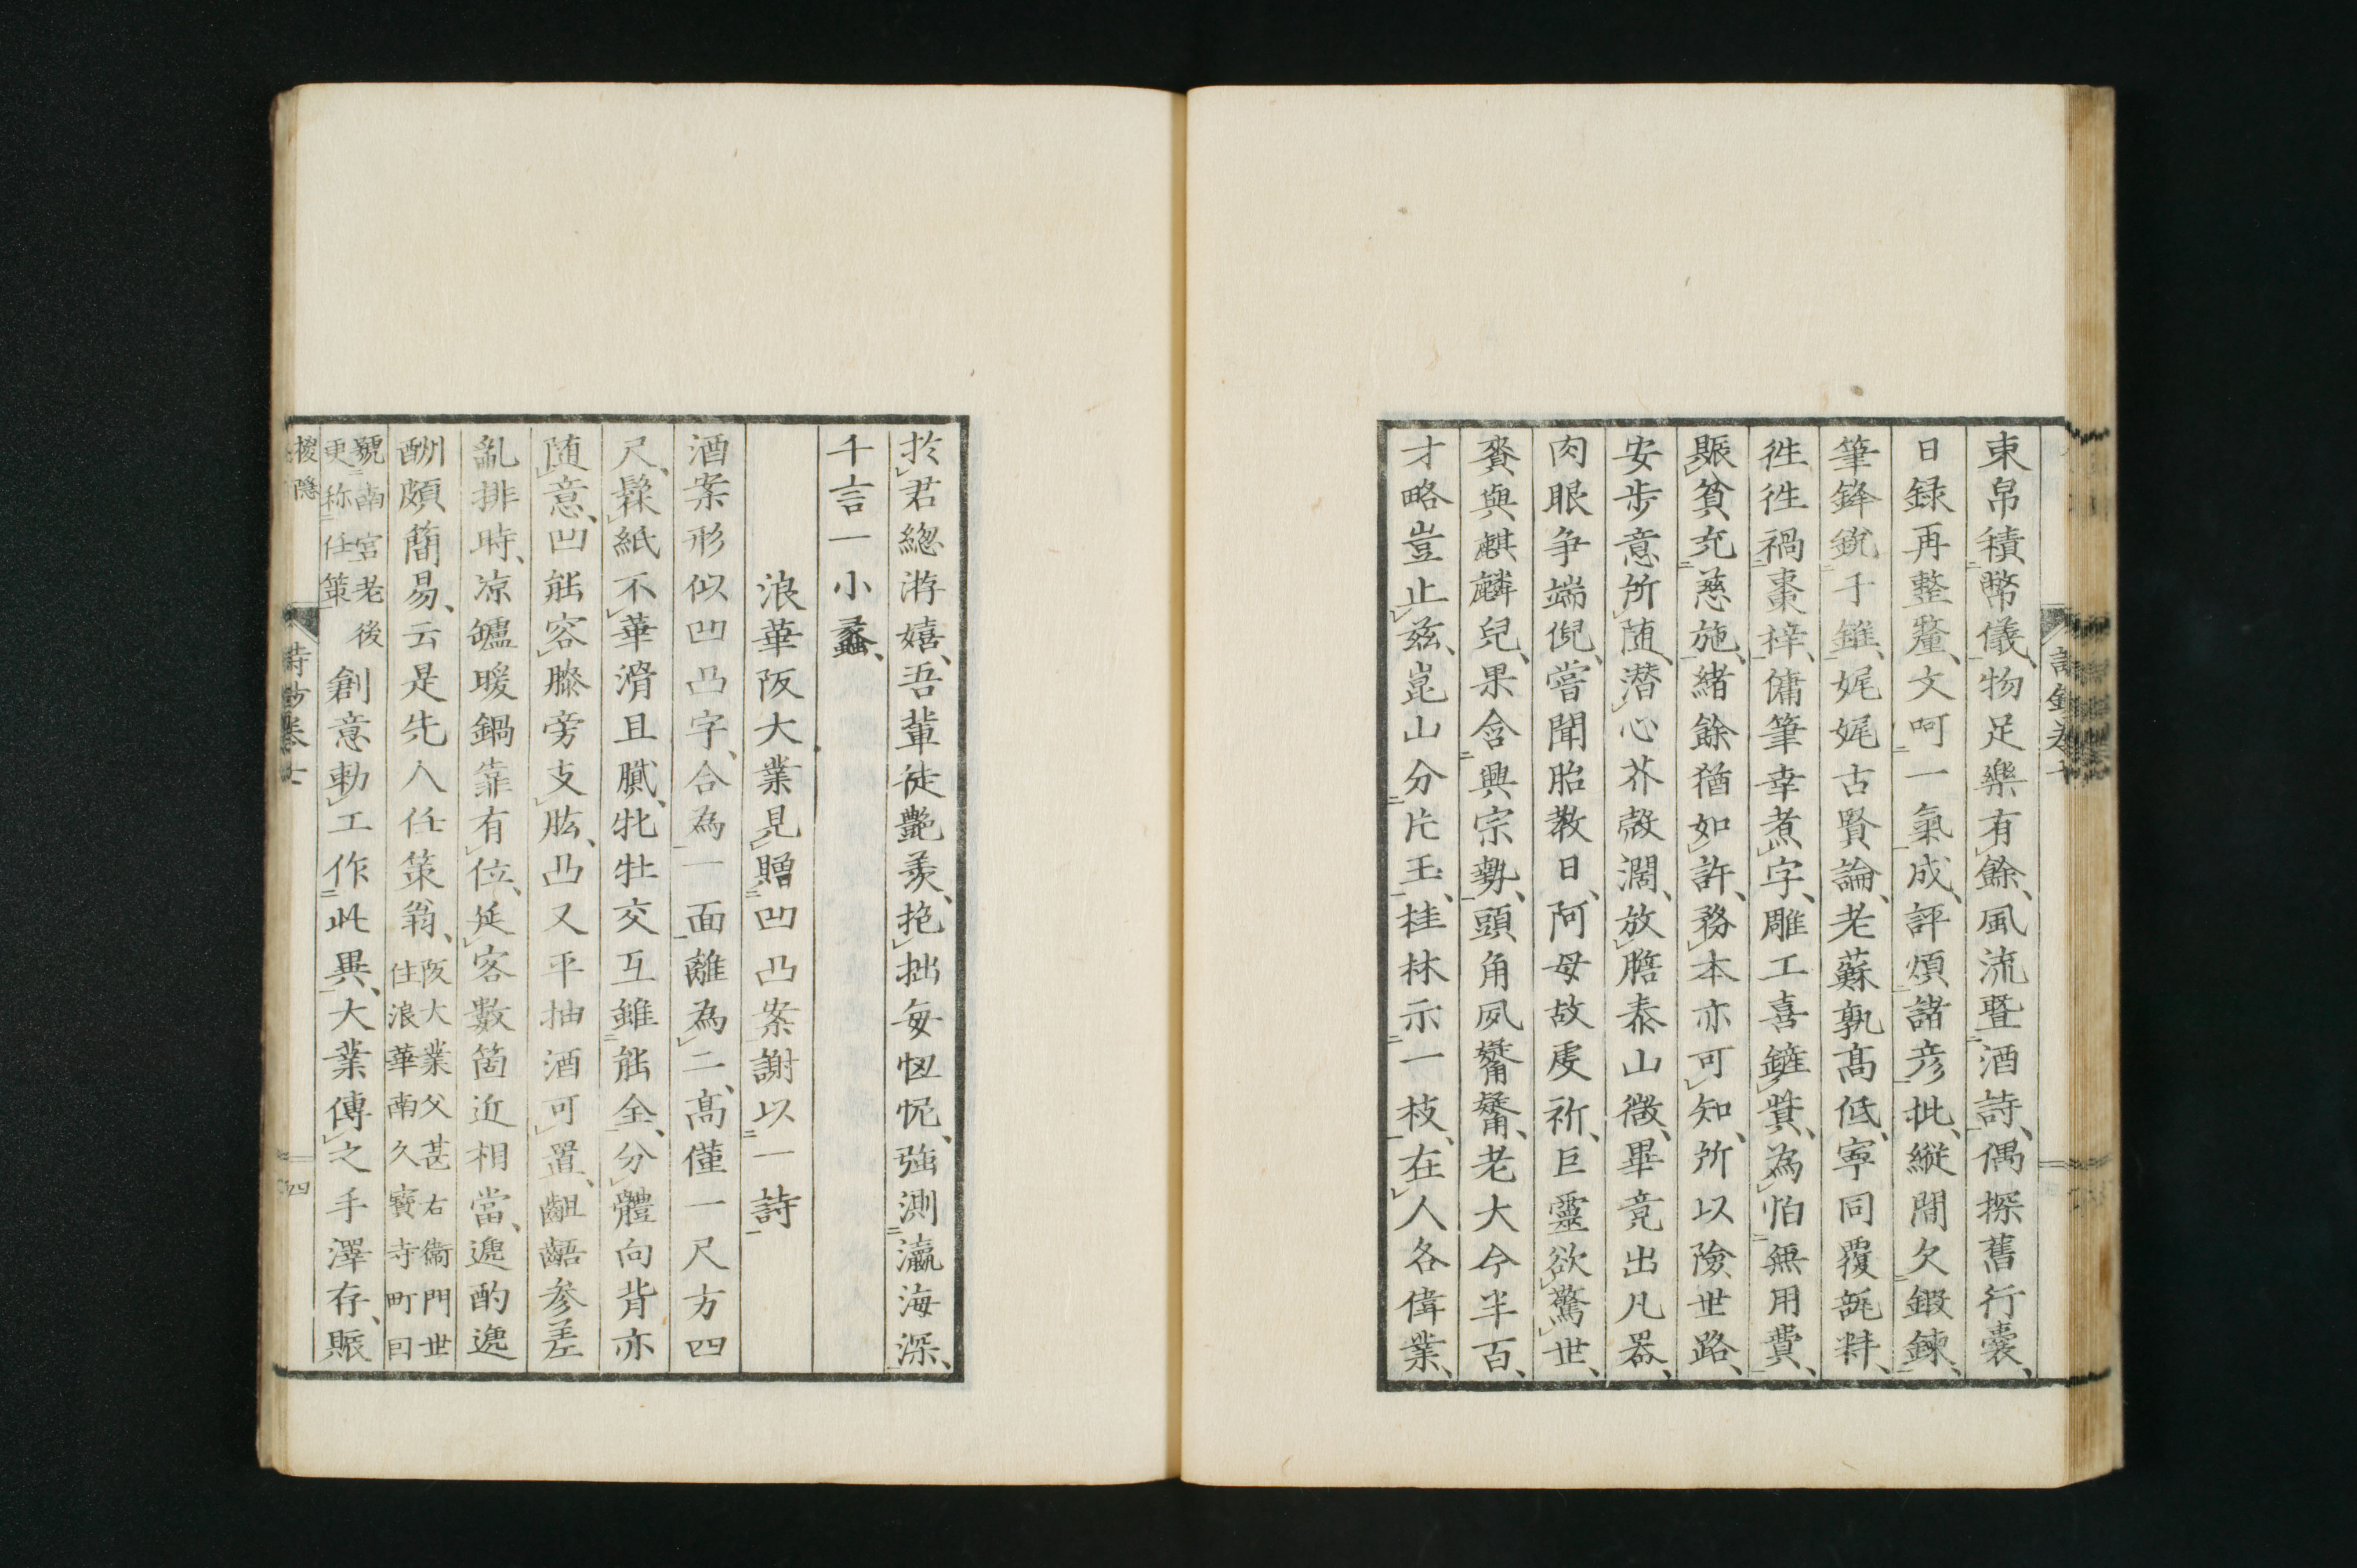 東帛積幣儀、物足樂有餘、風流暨酒詩、偶探舊行囊、
日録再整釐、文呵一氣成、評煩諸彦批、縱間欠鍛鍊、
筆鋒鋭于錐、娓娓古賢論、老蘇孰髙低、寧同覆瓿耕、
徃徃禍棗梓、傭筆幸煮字、雕工喜為怕無用費、
賑貧充慈施、緒餘猶如許、務本亦可知、所以險世路、
安歩意所随、潜心芥殼濶、放膽泰山微、畢竟出凡器、
肉眼争端倪、嘗聞胎教日、阿母故虔祈、巨靈欲驚世、
賚與麒麟兒、果含興宗勢、頭角夙觺觺、老大今半百、
才略豈止茲、崑山分片玉、桂林示一枝、在人各偉業、
於君緫游嬉、吾輩徒艶羨、抱拙毎忸怩、強測瀛海深、
千言一小蠡、
浪華阪大業見贈凹凸案謝以一詩
酒案形似凹凸字、合為一面離為二、髙僅一尺方四
尺、髹紙不華滑且膩、牝牡交互雖能全、分體向背亦
随意、凹能容膝旁支肱、凸又平抽酒可置、齟齬参差
亂排時、凉罏暖鍋靠有位、延客數箇近相當、遞酌遞
酬頗簡易、云是先人任策翁、阪大業父甚右衞門世
住浪華南久寳寺町因
號南宮老後
更称任策創意勅工作此異、大業傳之手澤存、賑
詩鈔卷七
四